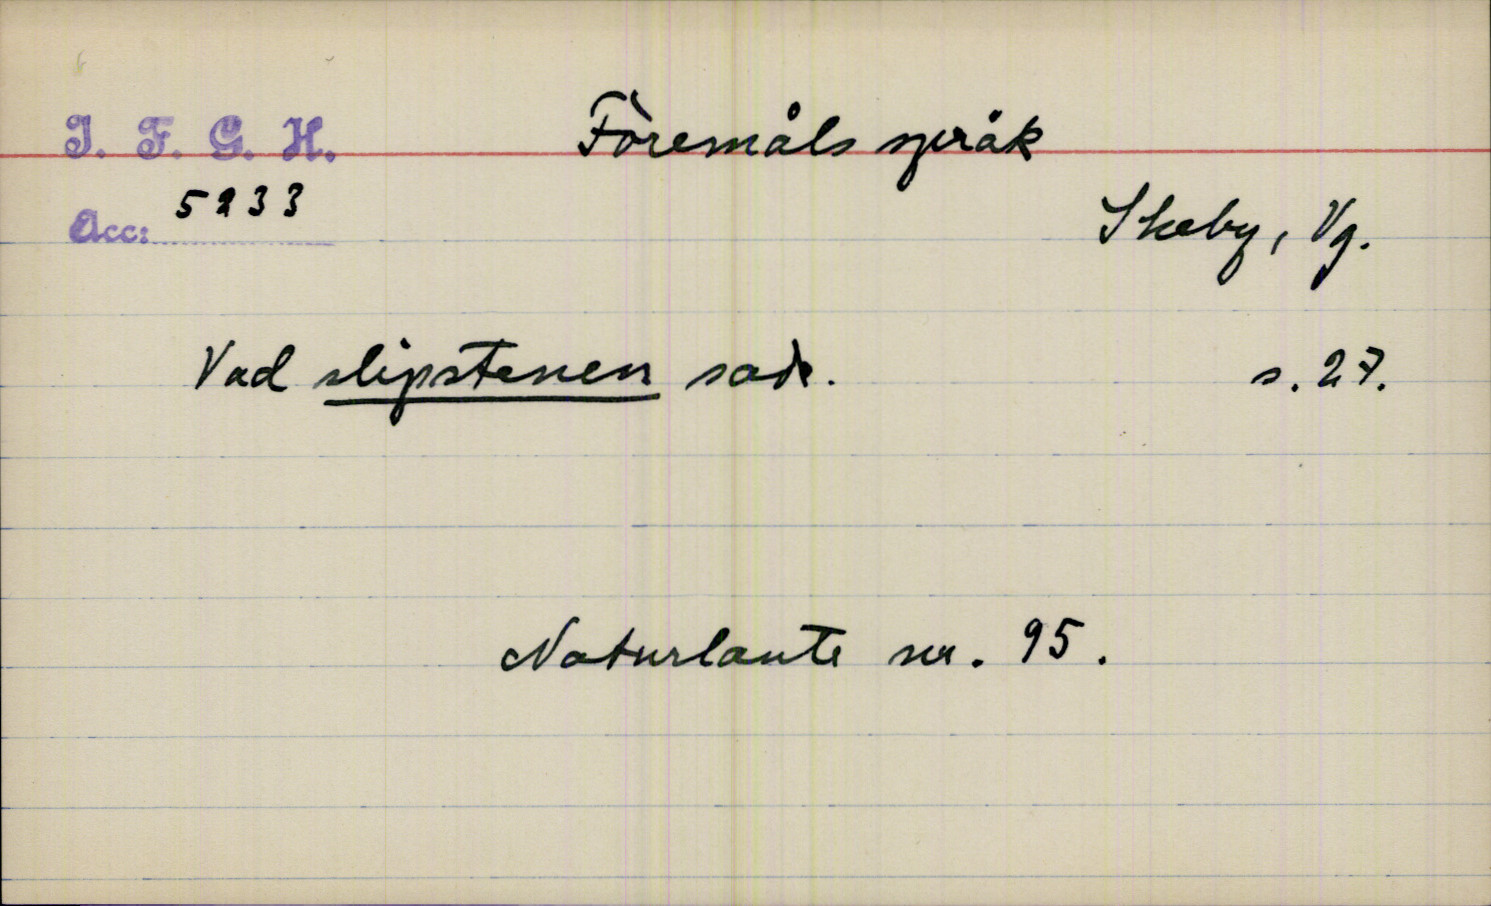 I. F. G. H. Föremåls språk
Acc: 5233
Skeby, Vg.
Vad slipstenen sade. s. 27.
Naturlaute nr. 95.